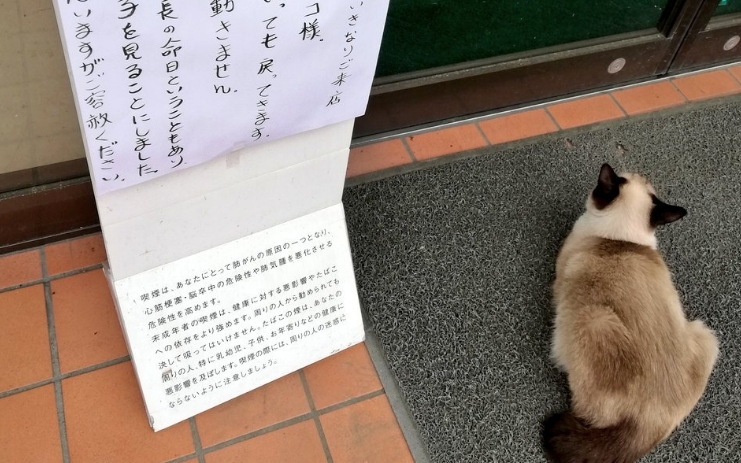 いきなりご来店
コ様。
いても戻ってきます。
動きません。
長の命日ということもあり
子を見ることにしました。
いますがご容赦ください。
喫煙は、あなたにとって肺がんの原因の一つとなり、
心筋梗塞・脳卒中の危険性や肺気腫を悪化させる
危険性を高めます。
未成年者の喫煙は、健康に対する悪影響やたばこ
への依存をより強めます。周りの人から勧められても
決して吸ってはいけません。たばこの煙は、あなたの
周りの人、特に乳幼児、子供、お年寄りなどの健康に
悪影響を及ぼします。喫煙の際には、周りの人の迷惑に
ならないように注意しましょう。